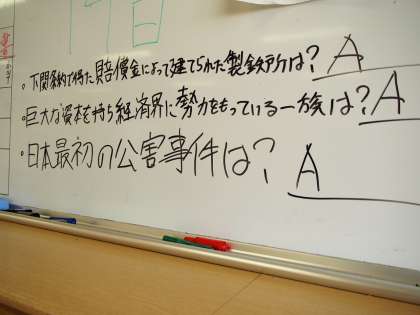 ・下関条約で得た賠償金によって建てられた製鉄所は? A
・巨大な資本を持ち経済界に勢力をもっている一族は? A
・日本最初の公害事件は? A